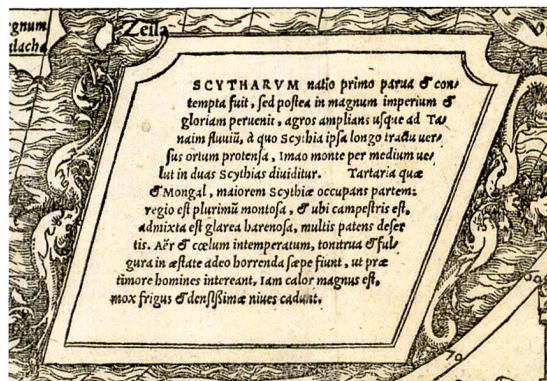 gnum
alacha
Zeila
SCYTHARVM natio primo parua & con⸗
tempta fuit, sed postea in magnum imperium &
gloriam peruenit, agros amplians usque ad Ta⸗
naim fluuiũ, à quo Scythia ipsa longo tractu uer⸗
sus ortum protensa, Imao monte per medium ue⸗
lut in duas Scythias diuiditur. Tartaria quæ
& Mongal, maiorem Scythiæ occupans partem:
regio est plurimũ montosa, & ubi campestris est,
admixta est glarea harenosa, multis patens deser
tis. Aër & cœlum intemperatum, tonitrua & ful⸗
gura in æstate adeo horrenda sæpe fiunt, ut præ
timore homines intereant, Iam calor magnus est,
mox frigus & densissimæ niues cadunt.
70